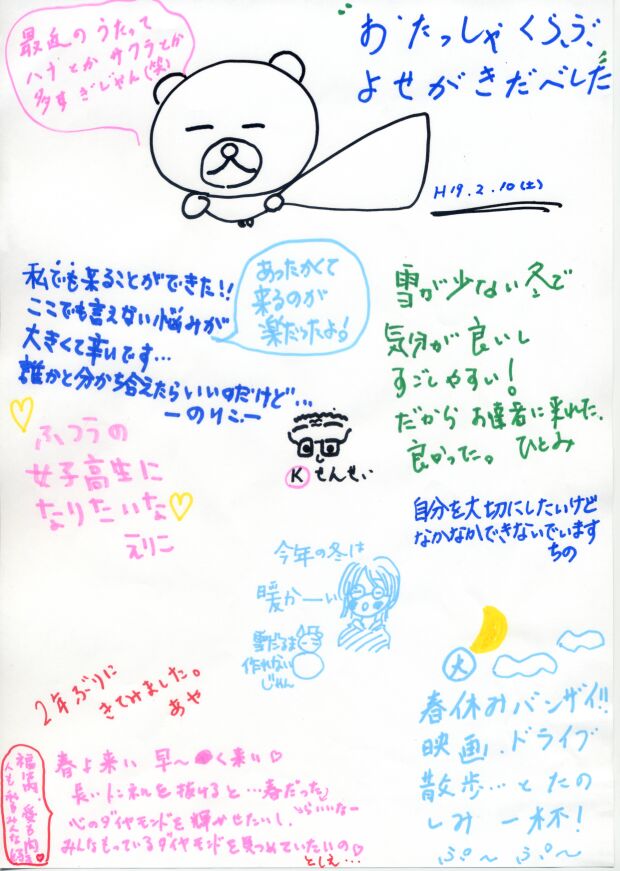 おたっしゃくらぶ
よせがきだべした
H19.2.10(土)
最近のうたって
ハナとか サクラとか
多すぎじゃん(笑)
私でも来ることができた!!
ここでも言えない悩みが
大きくて辛いです…
誰かと分かち合えたらいいのだけど…
ーのりこー
あったかくて
来るのが
楽だったよ!
雪が少ない冬で
気分が良いし
すごしやすい!
だから お達者に来れた、
良かった。 ひとみ
ふつうの
女子高生に
なりたいな
えりこ
K せんせい
自分を大切にしたいけど
なかなかできないでいます
ちの
今年の冬は
暖かーい
雪だるま
作れない
じゃん
2年ぶりに
きてみました。
あや
大
春休みバンザイ!!
映画、ドライブ
散歩…とたの
しみ一杯!
ぷ〜 ぷ〜
春よ来い 早〜く来い
長いトンネルを抜けると…春だった
らいいなー
心のダイヤモンドを輝かせたいし、
みんなもっているダイヤモンドを見つめていたいの
としえ…